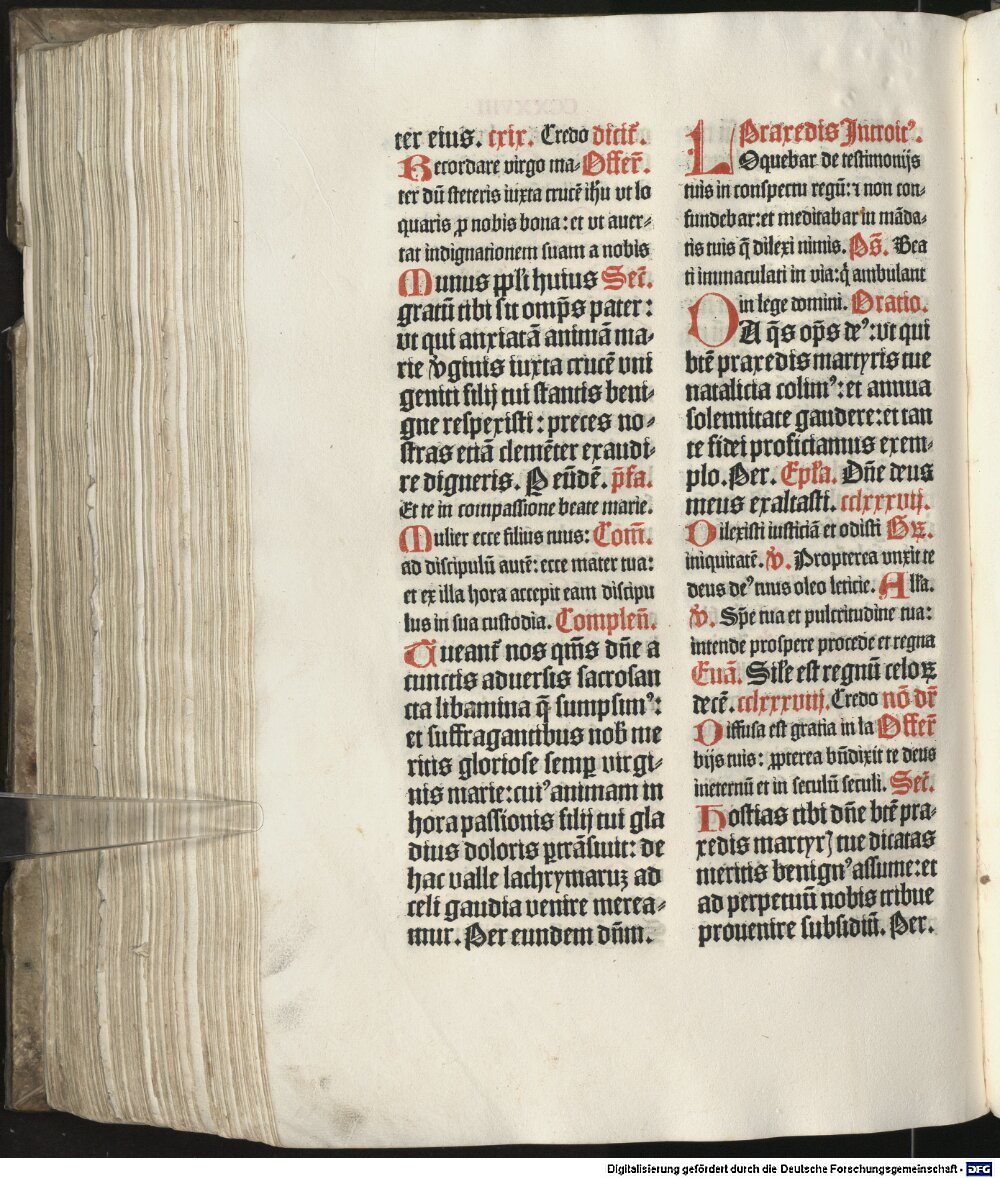 ter eius. cxix. Credo dicit̃.
Recordare virgo ma⸗ Offer̃.
ter dũ steteris iuxta crucẽ ihũ vt lo
quaris ꝓ nobis bona: et vt auer⸗
tat indignationem suam a nobis
Munus ꝓp̃li huius Secr̃.
gratũ tibi sit omp̃s pater:
vt qui anxiatã animãm ma⸗
rie v̓ginis iuxta crucẽ vni
geniti filij tui stantis beni⸗
gne respexisti: preces no⸗
stras etiã clemẽter exaudi⸗
re digneris. Ꝑ eũdẽ. p̃fa.
Et te in compassione beate marie.
Mulier ecce filius tuus: Com̃.
ad discipulũ autẽ: ecce mater tua:
et ex illa hora accepit eam discipu
lus in sua custodia. Compleñ.
Tueant̃ nos q̃m̃s dñe a
cunctis aduersis sacrosan
cta libamina q̃ sumpsimꝰ:
et suffragantibus nob̃ me
ritis gloriose semꝑ virgi⸗
nis marie: cuiꝰ animam in
hora passionis filij tui gla
dius doloris ꝑtrãsiuit: de
hac valle lachrymaruꝫ ad
celi gaudia venire merea⸗
mur. Per eundem dñm.
Praxedis Introitꝰ.
Loquebar de testimonijs
tuis in conspectu regũ: ⁊ non con⸗
fundebar: et meditabar in mãda⸗
tis tuis q̃ dilexi nimis. Ps̃. Bea
ti immaculati in via: q̃ ambulant
in lege domini. Oratio.
DA q̃s op̃s deꝰ: vt qui
btẽ praxedis martyris tue
natalicia colimꝰ: et annua
solennitate gaudere: et tan
te fidei proficiamus exem⸗
plo. Per. Ep̃la. Dñe deus
meus exaltasti. cclxxxvij.
Dilexisti iusticiã et odisti Grꝝ.
iniquitatẽ. ℣. Propterea vnxit te
deus deꝰ tuus oleo leticie. Alĺa.
℣. Sp̃e tua et pulcritudine tua:
intende prospere procede et regna
Euã. Sil̃e est regnũ celoꝝ
decẽ. cclxxxviij. Credo nõ dr̃
Diffusa est gratia in la Offer̃
bijs tuis: ꝓpterea bñdixit te deus
ineternũ et in seculũ seculi. Secr̃.
Hostias tibi dñe btẽ pra⸗
xedis martyrꝭ tue dicatas
meritis benignꝰ assume: et
ad perpetuũ nobis tribue
prouenire subsidiũ. Per.
Digitalisierung gefördert durch die Deutsche Forschungsgemeinschaft - DFG